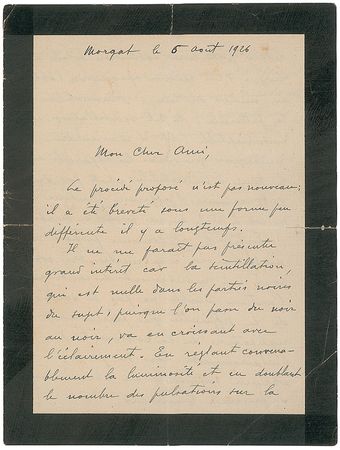 Morgat le 5 Août 1926
Mon Cher Ami,
Le procédé proposé n'est pas nouveau;
il a été breveté sous une forme peu
différente il y a longtemps.
Il ne me paraît pas présenter
grand intérêt car la scintillation,
qui est nulle dans les parties noires
du sujet, puisque l'on passe du noir
au noir, va en croissant avec
l'éclairement. En réglant convena-
blement la luminosité et en doublant
le nombre des pulsations sur la